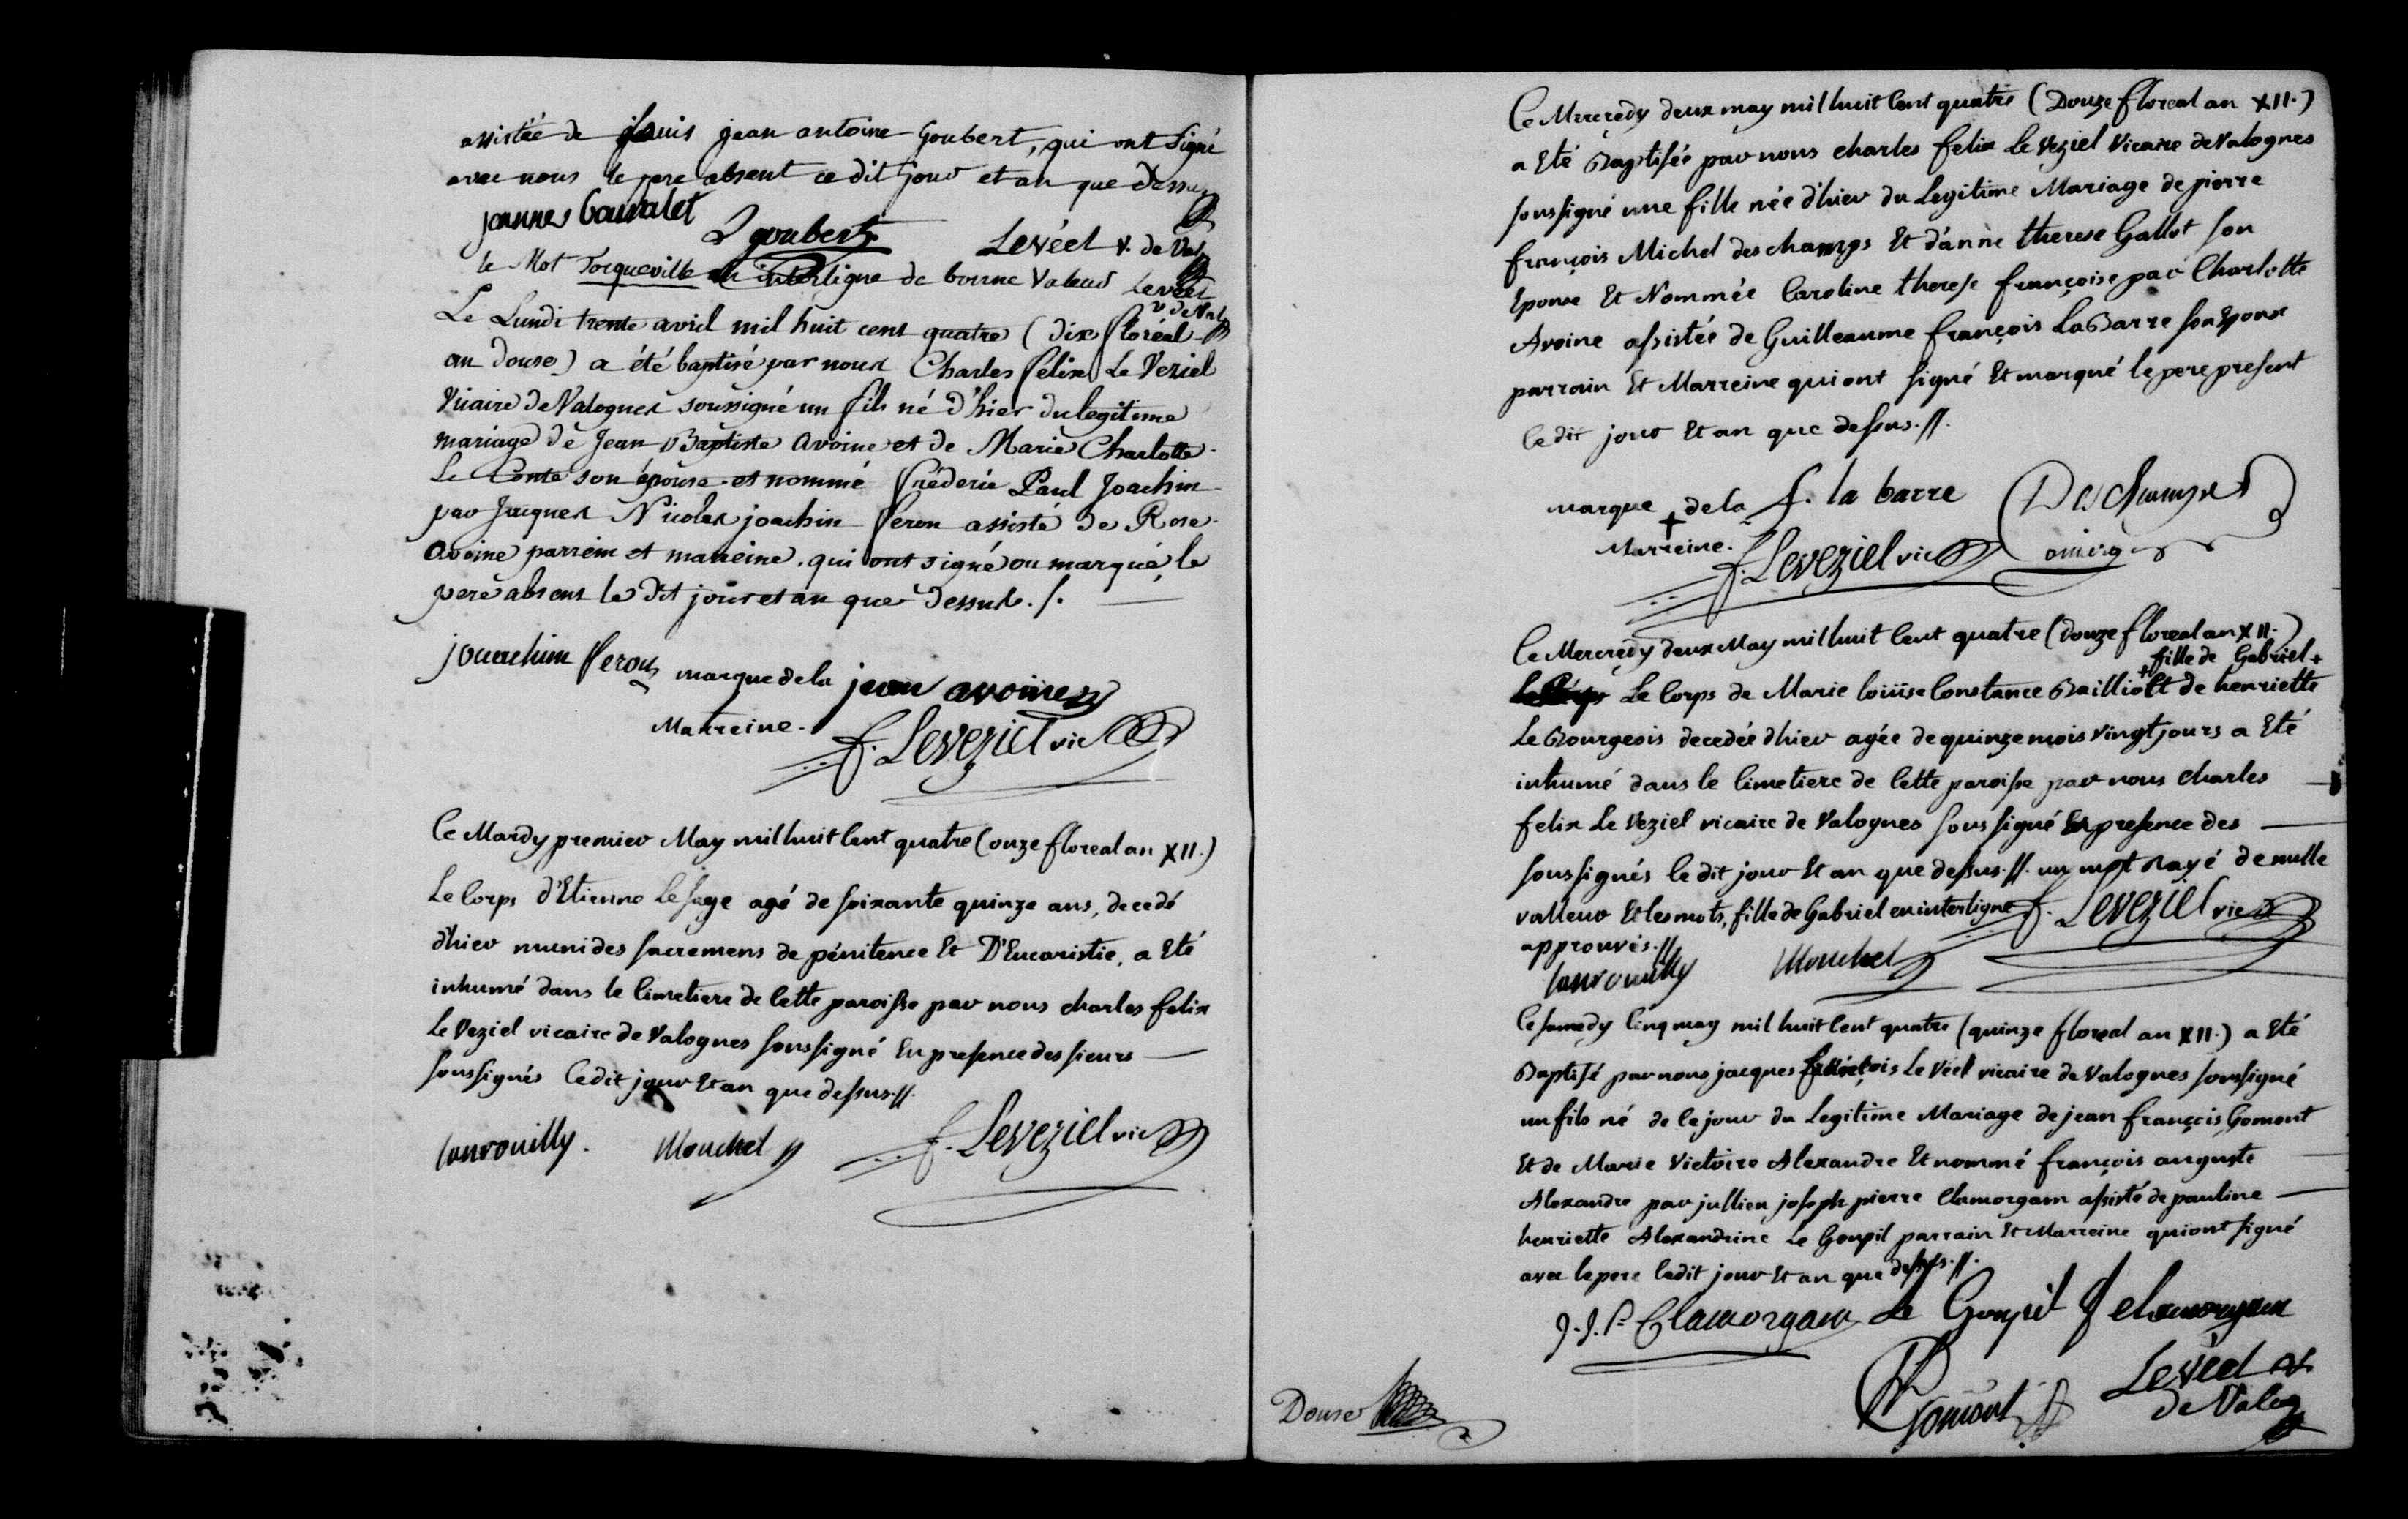 assistée de Louis jean antoine Goubert, qui ont Signé
avec nous le pere absent ce dit jour et an que dessus
Goubert Levéel v. de Val
le Mot Tocqueville en interligne de bonne Valeur Levéel
v. de Val
Le Lundi trente avril mil huit cent quatre (dix floréal
an douse) a été baptisé par nous Charles félix Le Veziel
Vicaire de Valognes soussigné un fils né d'hier du legitime
mariage de Jean Baptiste Avoine et de Marie Charlotte
Le Conte son épouse et nommé fréderic Paul Joachim
par Jacques Nicolas joachin feron assisté de Rose
Avoine parrein et mareine. qui ont signé ou marqué, le
pere absent le dit jour et an que dessus ./.
jouachim feron marque de la jean avoine
Marreine. f. Leveziel vic
Ce Mardy premier May mil huit cent quatre (onze floreal an XII.)
Le Corps d'Etienne Le sage agé de soixante quinze ans, decedé
d'hier muni des sacremens de pénitence Et D'Eucaristie, a Eté
inhumé dans le Cimetiere de Cette paroisse par nous charles felix
Le Veziel vicaire de Valognes soussigné En presence des sieurs
soussignés Cedit jour Et an que dessus.//.
Mouchel f. Leveziel vic
Ce Mercredy deux may mil huit Cent quatre (Douze floreal an XII.)
a Eté Baptisée par nous charles felix Le Veziel Vicaire de Valognes
soussigné une fille née d'hier du Legitime Mariage de pierre
françois Michel des champs Et d'anne therese Gallot son
Epouse Et Nommée Caroline therese françoise par Charlotte
Avoine assistée de Guilleaume françois La Barre son Epoux
parrain Et Marreine qui ont signé Et marqué le pere present
Cedit jour Et an que dessus.//.
marque + de la f. la barre Deschamps
Marreine. f. Leveziel vic
Ce Mercredy deux May mil huit Cent quatre (douze floreal an XII.)
+ fille de Gabriel +
Le Corps de Marie loüise Constance Bailliot Et de henriette
Le Bourgeois decedée d'hier agée de quinze mois vingt jours a Eté
inhumé dans le Cimetiere de Cette paroisse par nous Charles
felix Le Veziel vicaire de Valognes soussigné En presence des
soussignés ledit jour Et an que dessus.//. un mot Rayé de nulle
valleur Et les mots, fille de Gabriel en interligne f. Leveziel vic
approuvés.//
Mouchel
Ce samedy Cinq may mil huit Cent quatre (quinze floreal an XII.) a Eté
Baptisé par nous jacques françois Le Véel vicaire de Valognes soussigné
un fils né de Ce jour du Legitime Mariage de jean françois Gomont
Et de Marie Victoire Alexandre Et nommé françois auguste
Alexandre par jullien joseph pierre Clamorgam assisté de pauline
henriette Alexandrine Le Goupil parrain Et Marreine qui ont signé
avec le pere Cedit jour Et an que dessus.//.
J. J. P. Clamorgam Le Goupil
Gomont Levéel v.
de Valog
Douse